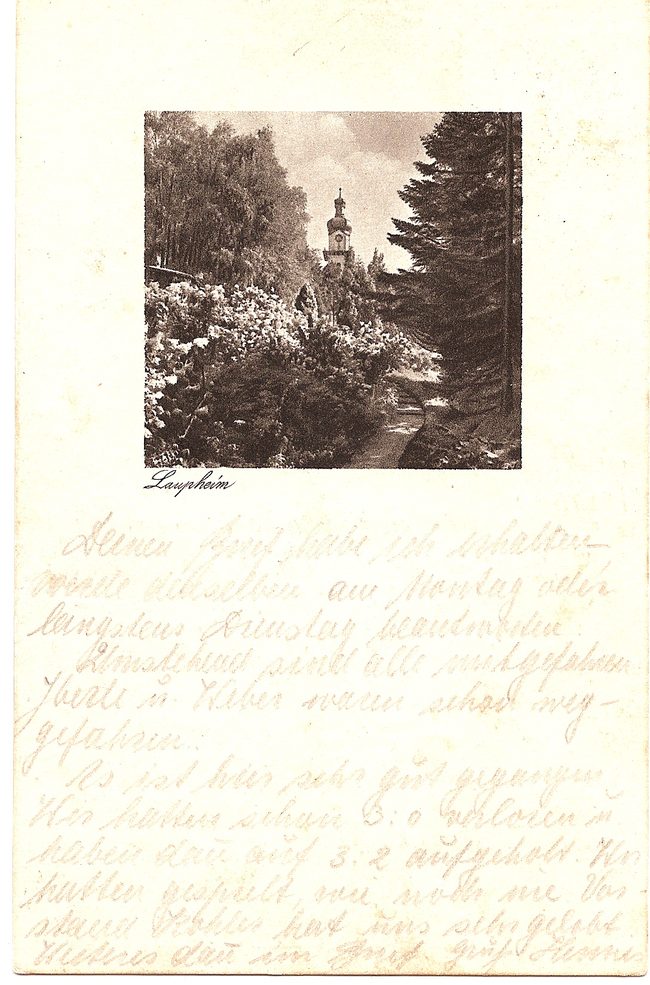 Laupheim
Deinen Brief habe ich erhalten
werde denselben am Montag oder
längstens Dienstag beantworten.
Umstehend sind alle mitgefahren
u. Weber waren schon weg-
gefahren.
Es ist hier sehr gut gegangen
Wir hatten schon 3:0 verloren u
haben dan auf 3:2 aufgeholt. Wir
hatten gespielt wie noch nie Vor-
stand Kohler hat uns sehr gelobt
Weiteres dan im Brief Gruß